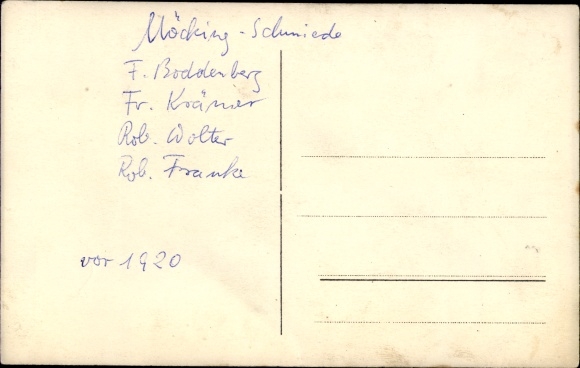 Möcking-Schmiede
F. Boddenberg
Fr. Krämer
Rob. Wolter
Rob. Franke
vor 1920